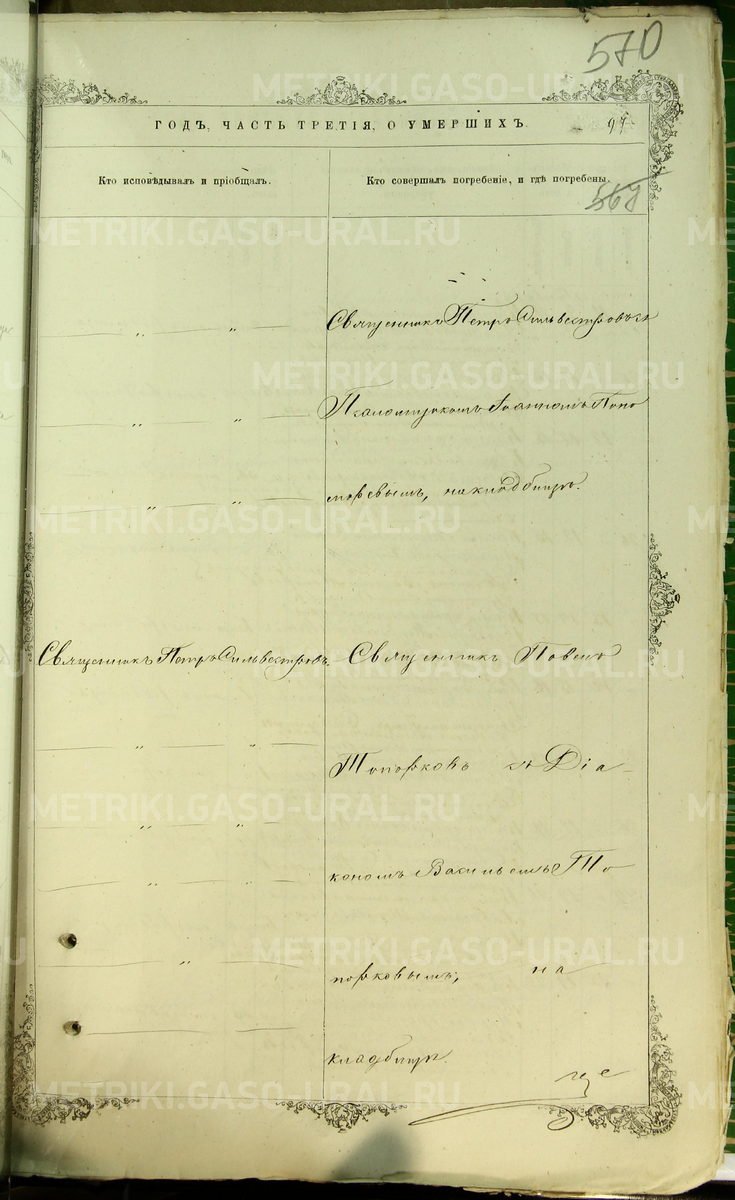 570
ГОДЪ, ЧАСТЬ ТРЕТІЯ, О УМЕРШИХЪ.
97
Кто исповѣдывалъ и пріобщалъ.
Кто совершалъ погребеніе, и гдѣ погребены.
568
Священникъ Петръ Сильвестровъ съ
Псаломщикомъ Іоанномъ Поно
маревымъ, на кладбищѣ.
Священникъ Петръ Сильвестровъ.
Священникъ Павелъ
Топорковъ съ Діа-
кономъ Васильемъ То
порковымъ, на
кладбищѣ.
METRIKI.GASO-URAL.RU